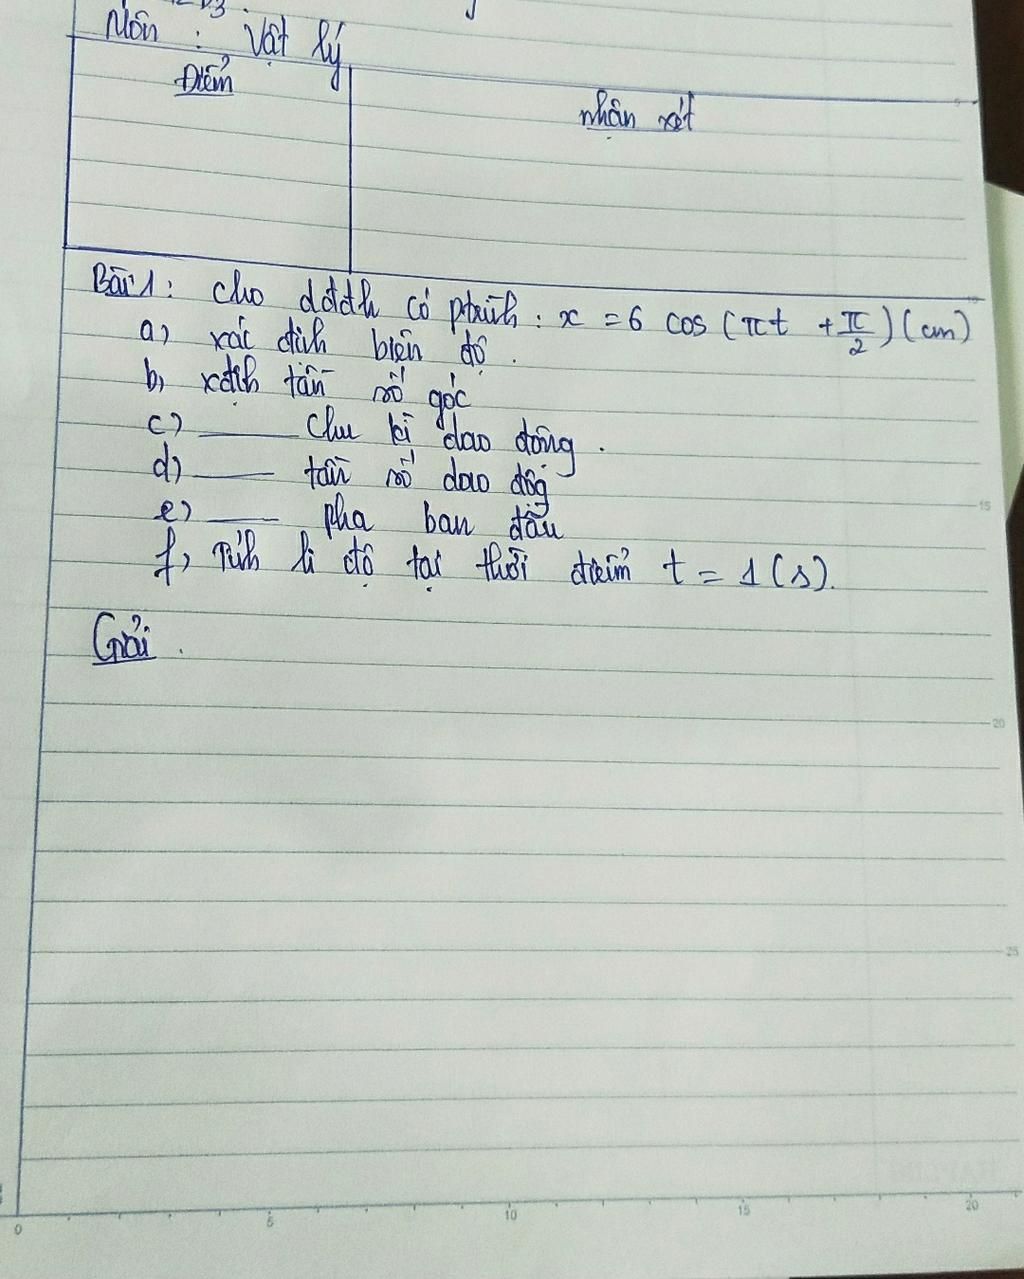 Môn : Vật lý
Điểm
nhận xét
Bài 1: cho dđđh có ptrình : x = 6 cos (πt + π/2) (cm)
a) xác định biện độ .
b, xđịh tần số góc
c) ___ Chu kì dao động .
d) ___ tần số dao độg
e) ___ pha ban đầu
f, Tính li độ tại thời điểm t = 1 (s).
Giải .
5
10
15
20
25
0
5
10
15
20